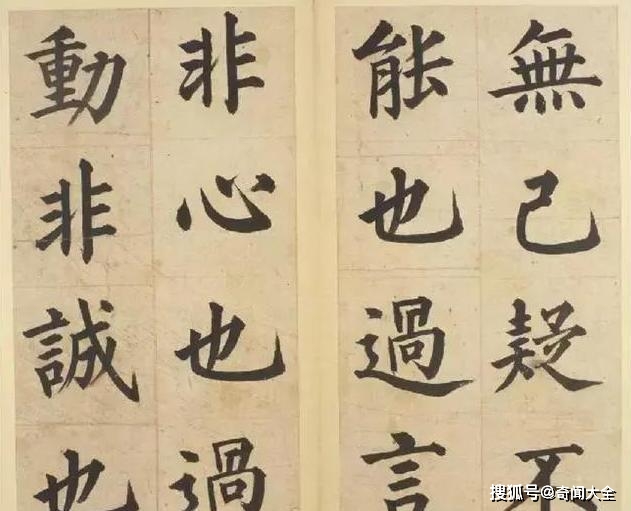 無己疑不
能也過言
非心也過
動非誠也
搜狐号@奇闻大全